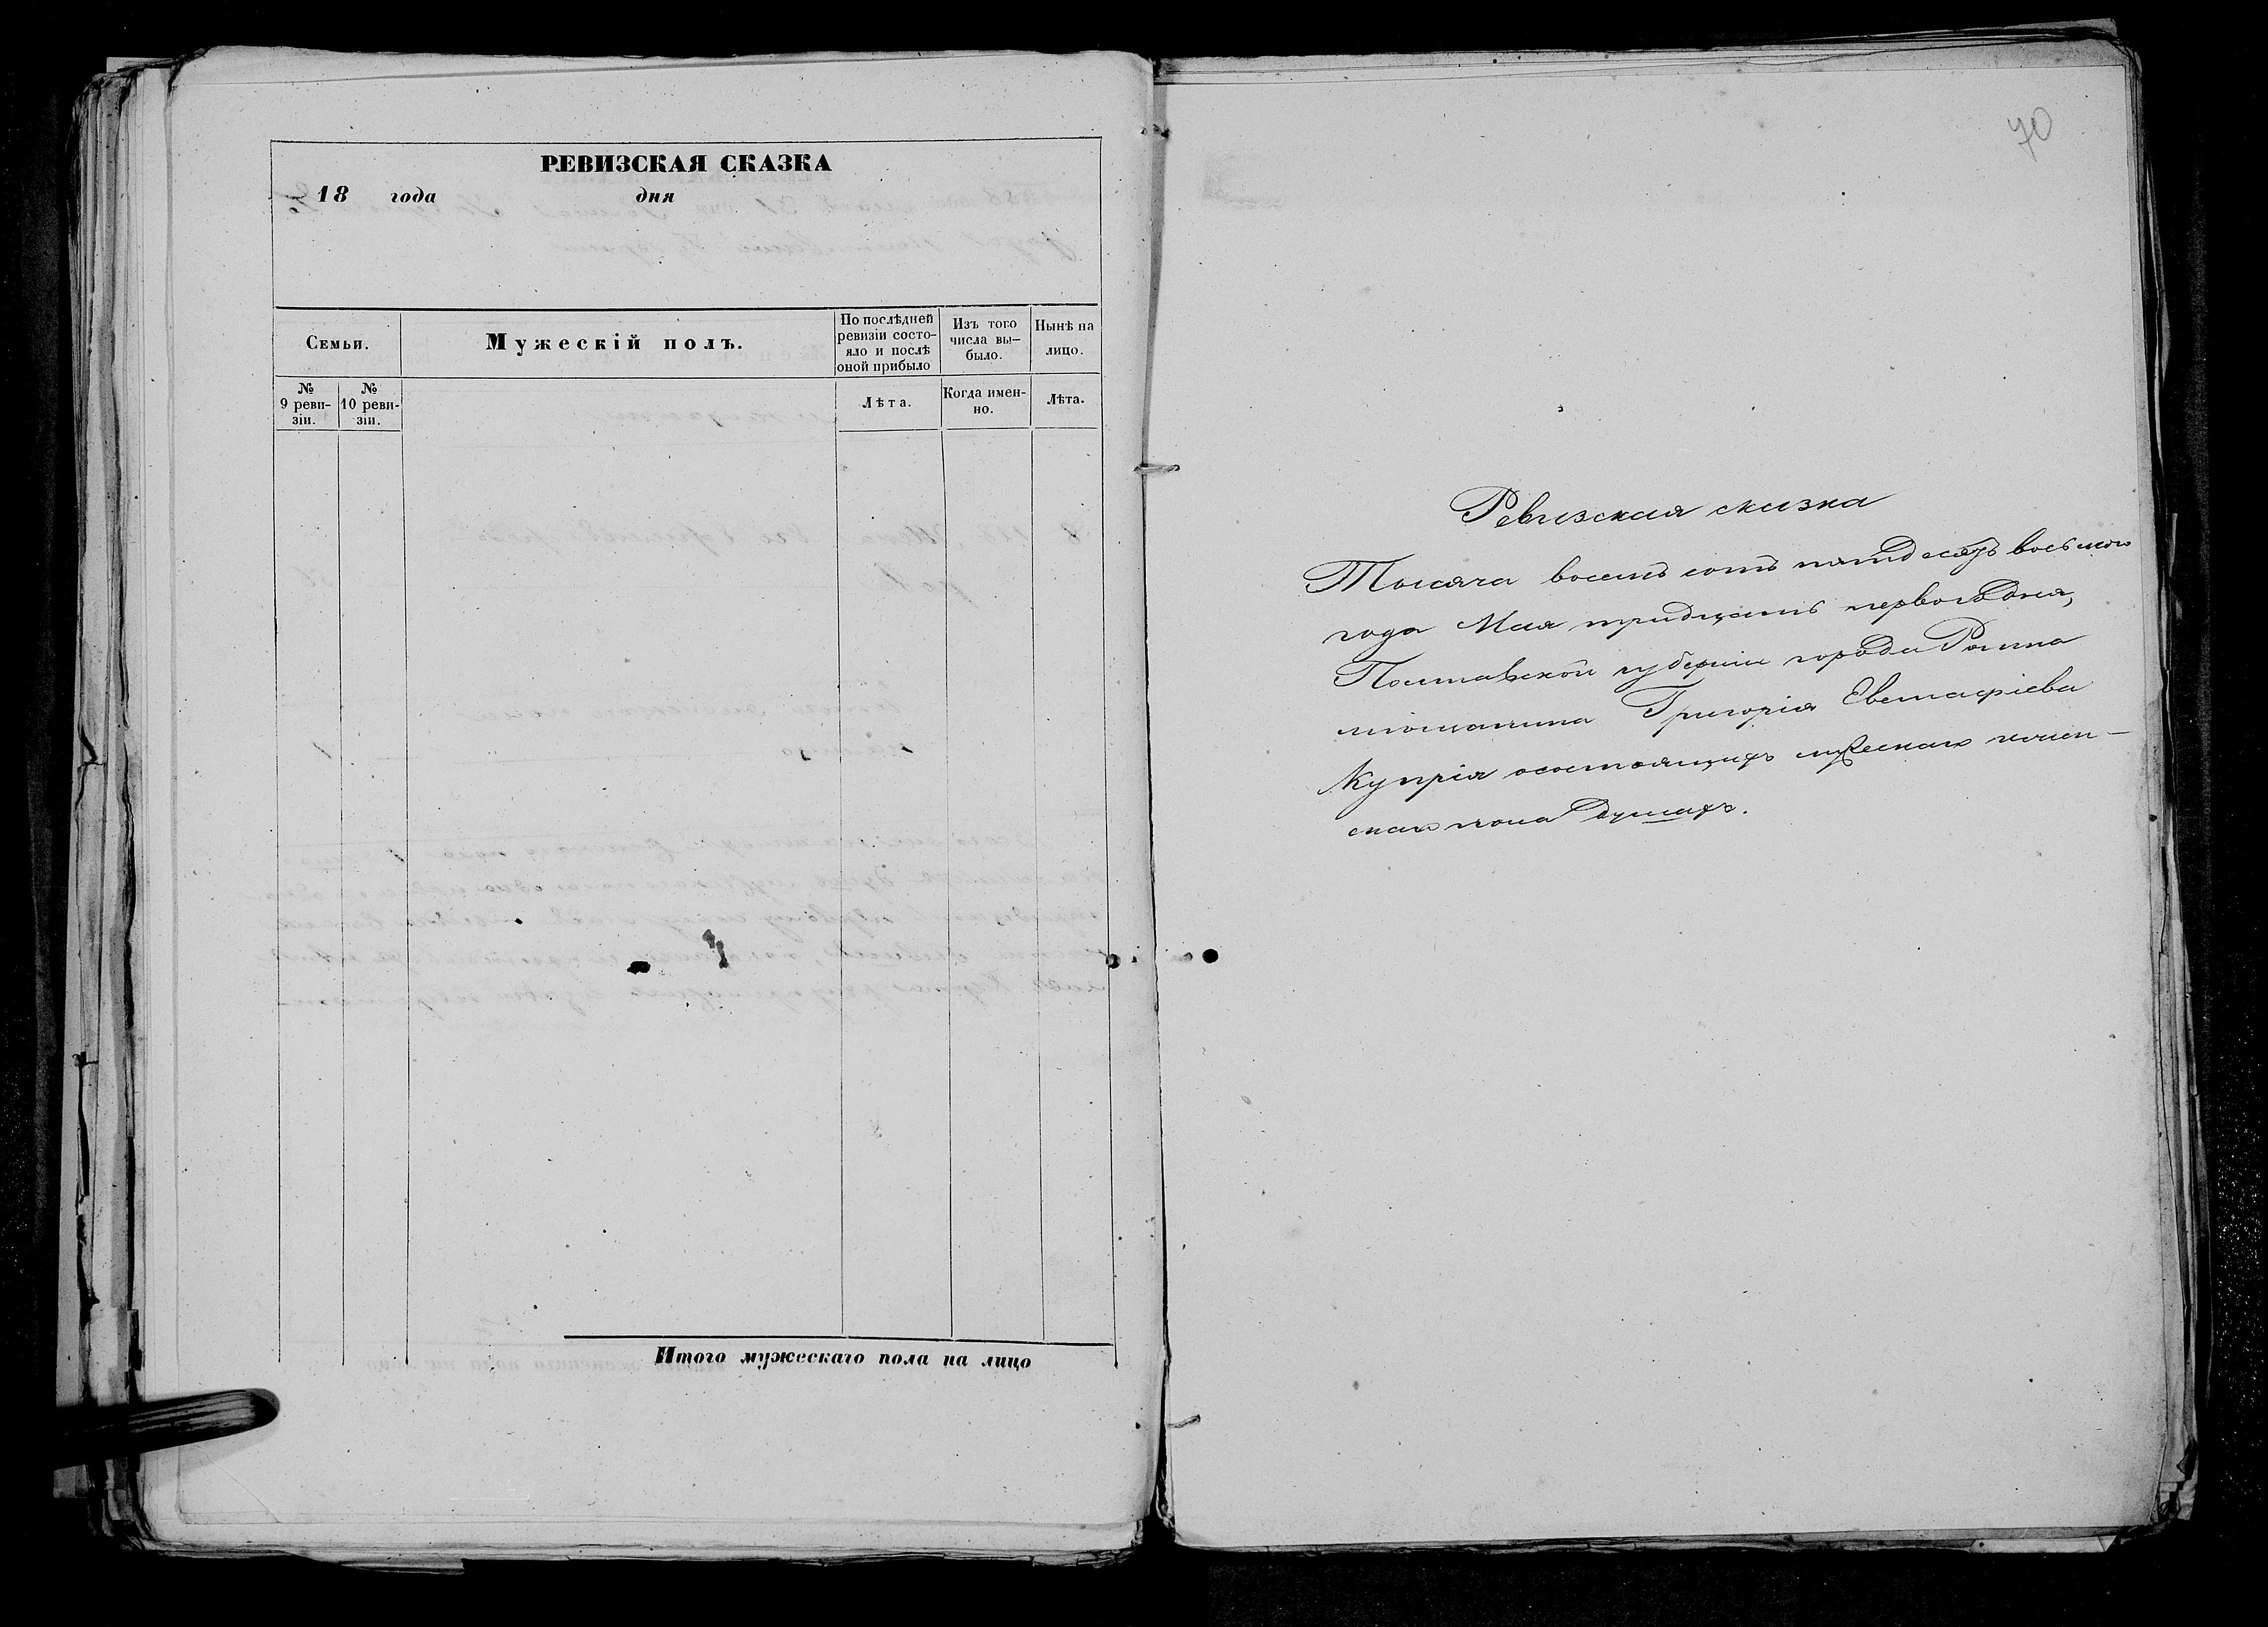 РЕВИЗСКАЯ СКАЗКА
18 года дня
Семьи.
Мужескій полъ.
По послѣдней
ревизіи состо-
яло и послѣ
оной прибыло
Изъ того
числа вы-
было.
Нынѣ на
лицо.
№
9 реви-
зіи.
№
10 реви-
зіи.
Лѣта.
Когда имен-
но.
Лѣта.
Итого мужескаго пола на лицо
70
Ревизская сказка
Тысяча восемь сотъ пятдесятъ восьмого
года Мая тридцать первого дня,
Полтавской губерніи города Ромна
мѣщанина Григорія Евстафіева
Купрія осостоящихъ мужескаго и женс-
скаго пола душахъ.